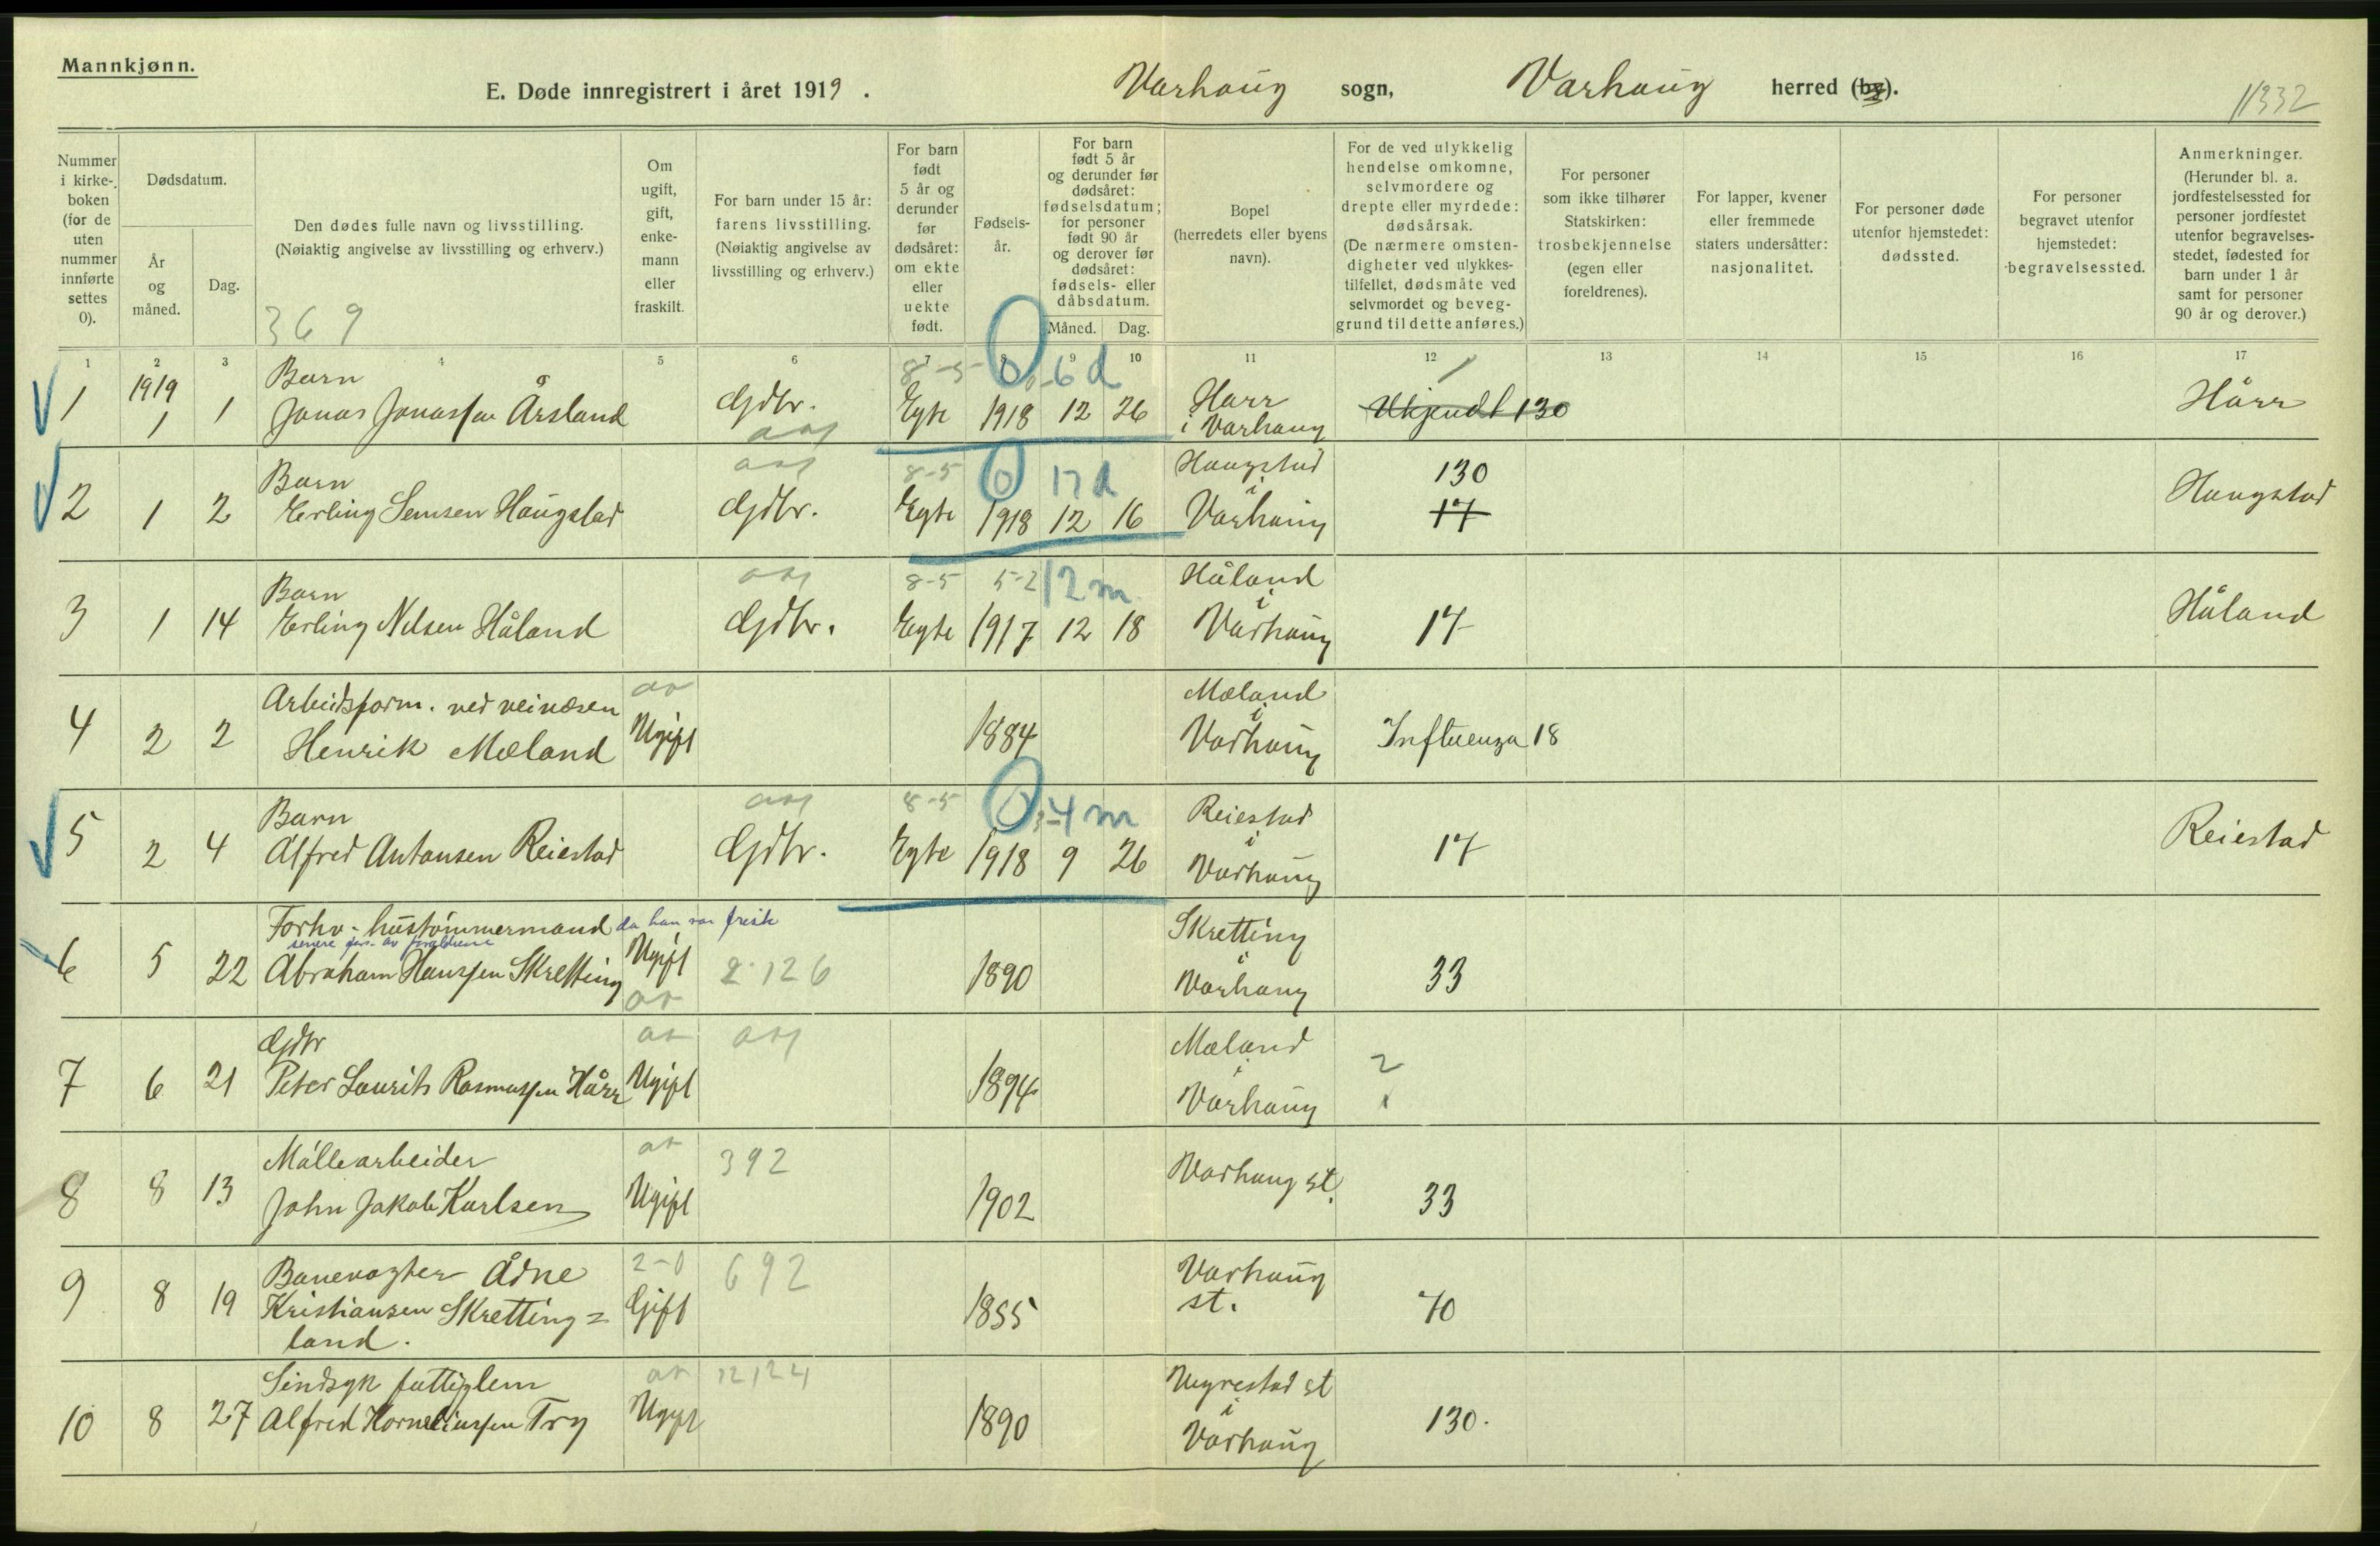 Mannkjønn.
E. Døde innregistrert i året 1919. Varhoug sogn, Varhoug herred (by).
11332
Nummer i kirke-boken (for de uten nummer innførte settes 0).
Dødsdatum.
År og måned.
Dag.
Den dødes fulle navn og livsstilling.
(Nøiaktig angivelse av livsstilling og erhverv.)
369
Om ugift, gift, enke-mann eller fraskilt.
For barn under 15 år: farens livsstilling. (Nøiaktig angivelse av livsstilling og erhverv.)
For barn født 5 år og derunder før dødsåret: om ekte eller uekte født.
Fødsels-år.
For barn født 5 år og derunder før dødsåret: fødselsdatum; for personer født 90 år og derover før dødsåret: fødsels- eller dåbsdatum.
Måned. Dag.
Bopel (herredets eller byens navn).
For de ved ulykkelig hendelse omkomne, selvmordere og drepte eller myrdede: dødsårsak. (De nærmere omsten-digheter ved ulykkes-tilfellet, dødsmåte ved selvmordet og beveg-grund til dette anføres.)
For personer som ikke tilhører Statskirken: trosbekjennelse (egen eller foreldrenes).
For lapper, kvener eller fremmede staters undersåtter: nasjonalitet.
For personer døde utenfor hjemstedet: dødssted.
For personer begravet utenfor hjemstedet: begravelsessted.
Anmerkninger. (Herunder bl. a. jordfestelsessted for personer jordfestet utenfor begravelses-stedet, fødested for barn under 1 år samt for personer 90 år og derover.)
1 2 3 4 5 6 7 8 9 10 11 12 13 14 15 16 17
1919 Barn 8-5 0 6 d
1 1 1 Jonas Jonassen Årsland Gdbr. Egte 1918 12 26 Harr i Varhoug Ukjendt 130 Hårr
Barn 8-5 0 17 d Haugstad 130
2 1 2 Erling Semsen Haugstad Gdbr. Egte 1918 12 16 i Varhoug 17 Haugstad
Barn 8-5 5-2 12 m Håland
3 1 14 Erling Nilsen Håland Gdbr. Egte 1917 12 18 i Varhoug 17 Håland
Arbeidsform. ved veivæsen Mæland
4 2 2 Henrik Mæland Ugift 1884 i Varhoug Influenza 18
Barn 8-5 0 4 m Reiestad
5 2 4 Alfred Antonsen Reiestad Gdbr. Egte 1918 9 26 i Varhoug 17 Reiestad
Forhv. hustømmermand da han var frisk
senere fors. av forældrene Skretting
6 5 22 Abraham Hanssen Skretting Ugift 2 126 1890 i Varhoug 33
Gdbr Mæland 2
7 6 21 Peter Laurits Rasmussen Hårr Ugift 1894 i Varhoug
Møllearbeider 392
8 8 13 John Jakob Karlsen Ugift 1902 Varhoug st. 33
Banevogter Ådne 2-0 692 Varhoug
9 8 19 Kristiansen Skretting= Gift 1855 st. 70
land.
Sindsyk fattiglem 12124 st
10 8 27 Alfred Korneliussen Try Ugift 1890 i Varhoug 130.